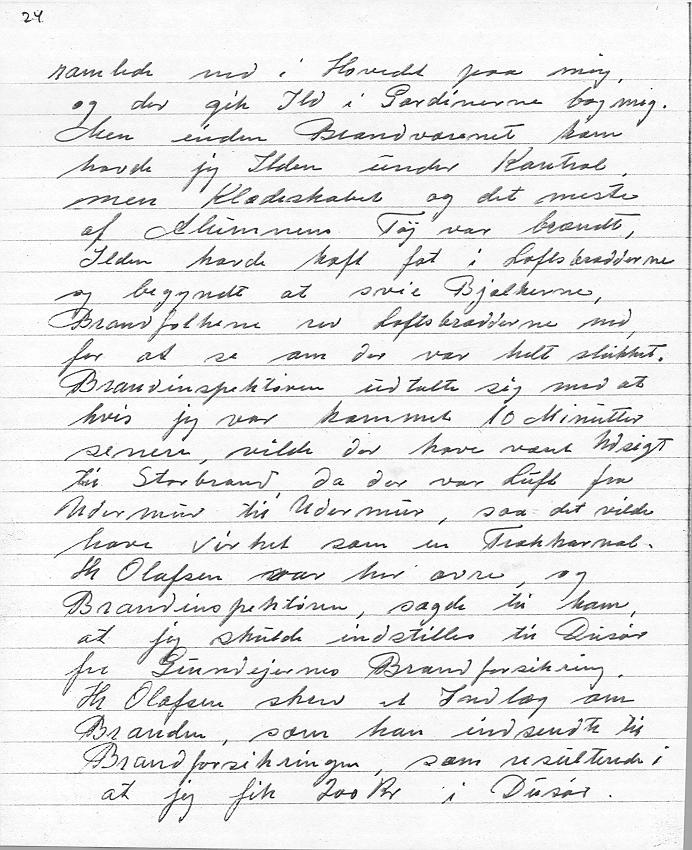 24
ramlede ned i Hovedet paa mig,
og der gik Ild i Gardinerne bag mig.
Men inden Brandvæsenet kom
havde jeg Ilden under Kontrol,
men Klædeskabet og det meste
af Alumnens Tøj var brændt,
Ilden havde haft fat i Loftsbrædderne
og begyndt at svie Bjælkerne,
Brandfolkene rev Loftsbrædderne ned,
for at se om der var helt slukket.
Brandinspektøren udtalte sig med at
hvis jeg var kommet 10 Minutter
senere, vilde der have været Udsigt
til Storbrand, da der var Luft fra
Udermur til Udermur, saa det vilde
have virket som en Trækkanal.
Hr Olafsen var her ovre, og
Brandinspektøren, sagde til ham,
at jeg skulde indstilles til Dusør
fra Grundejernes Brandforsikring.
Hr Olafsen skrev et Indlæg om
Branden, som han indsendte til
Brandforsikringen, som resulterede i
at jeg fik 200 Kr i Dusør.